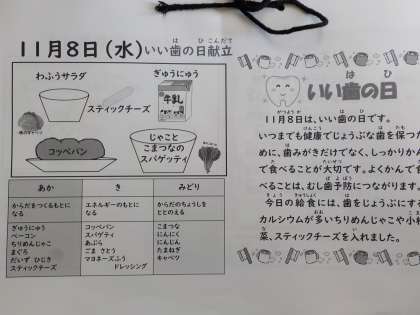 11月8日(水)いい歯の日献立
は ひ こんだて
わふうサラダ
ぎゅうにゅう
牛乳
スティックチーズ
コッペパン
じゃことこまつなの
スパゲッティ
あか き みどり
からだをつくるもとに
なる
エネルギーのもとに
なる
からだのちょうしを
ととのえる
ぎゅうにゅう
ベーコン
ちりめんじゃこ
まぐろ
だいず ひじき
スティックチーズ
コッペパン
スパゲティ
あぶら
ごま さとう
マヨネーズふう
ドレッシング
こまつな
にんにく
にんじん
たまねぎ
キャベツ
は ひ
いい歯の日
11月8日は、いい歯の日です。
いつまでも健康でじょうぶな歯を保
めに、歯みがきだけでなく、しっかりかん
で食べることが大切です。よくかんで食
べることは、むし歯予防につながります。
今日の給食には、歯をじょうぶにす
カルシウムが多いちりめんじゃこや小松
菜、スティックチーズを入れました。